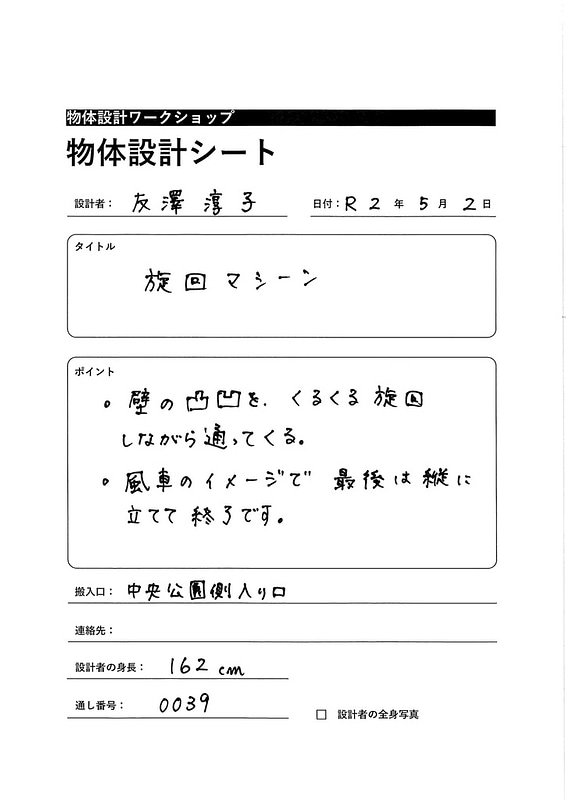 物体設計ワークショップ
物体設計シート
設計者： 友澤 淳子 日付：R 2 年 5 月 2 日
タイトル
旋回マシーン
ポイント
。壁の凸凹を、くるくる旋回
しながら通ってくる。
。風車のイメージで 最後は縦に
立てて終了です。
搬入口： 中央公園側入り口
連絡先：
設計者の身長： 162 cm
通し番号： 0039
□ 設計者の全身写真